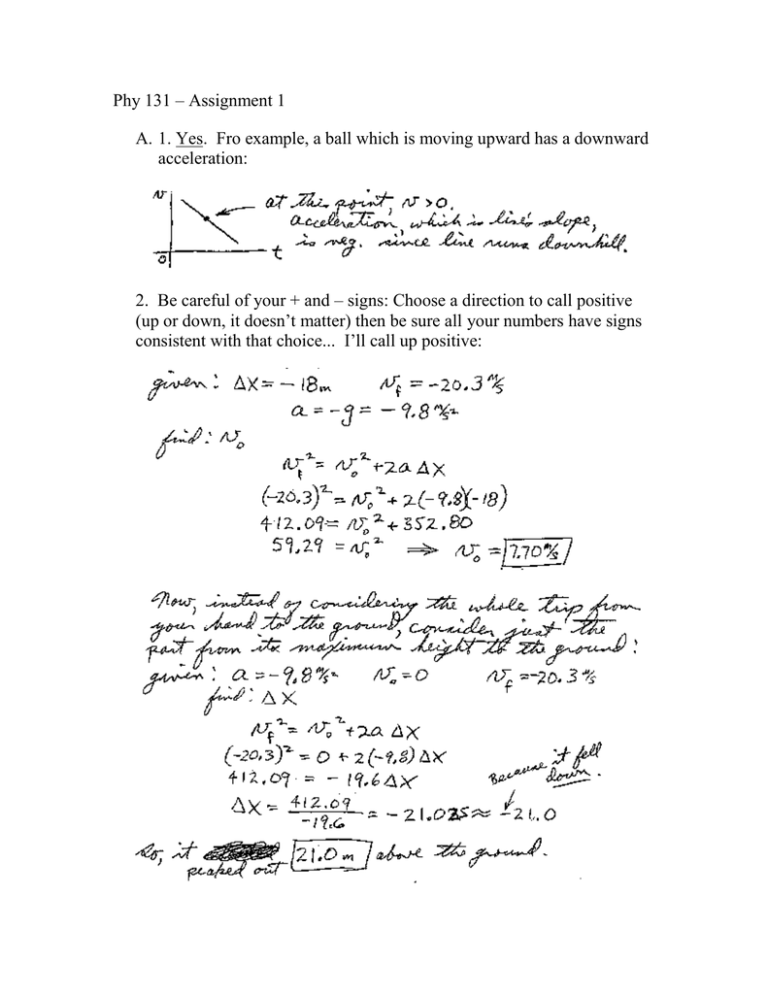 Phy 131 – Assignment 1
A. 1. Yes. Fro example, a ball which is moving upward has a downward
acceleration:
v
at this point, v > 0.
acceleration, which is line's slope,
is neg. since line runs downhill.
0
t
2. Be careful of your + and – signs: Choose a direction to call positive
(up or down, it doesn't matter) then be sure all your numbers have signs
consistent with that choice... I'll call up positive:
given: Δx = – 18m v_f = –20.3 m/s
a = –g = – 9.8 m/s²
find: v₀
v_f² = v₀² + 2a Δx
(–20.3)² = v₀² + 2(–9.8)(–18)
412.09 = v₀² + 352.80
59.29 = v₀² ⇒ v₀ = 7.70 m/s
Now, instead of considering the whole trip from
your hand to the ground, consider just the
part from its maximum height to the ground:
given: a = –9.8 m/s² v₀ = 0 v_f = –20.3 m/s
find: Δx
v_f² = v₀² + 2a Δx
(–20.3)² = 0 + 2(–9.8) Δx
412.09 = – 19.6 Δx
Because it fell
down.
Δx = 412.09 / –19.6 = – 21.025 ≈ –21.0
So, it peaked out 21.0 m above the ground.